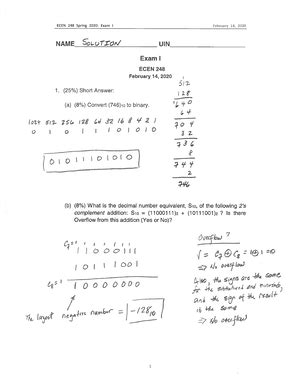 ECEN 248 Spring 2020: Exam I February 14, 2020
NAME SOLUTION UIN
Exam I
ECEN 248
February 14, 2020
1. (25%) Short Answer:
(a) (8%) Convert (746)10 to binary.
512
128
640
64
704
32
736
8
744
2
746
1024 512 256 128 64 32 16 8 4 2 1
0 1 0 1 1 1 0 1 0 1 0
01011101010
(b) (8%) What is the decimal number equivalent, S10, of the following 2's
complement addition: S10 = (11000111)2 + (10111001)2 ? Is there
Overflow from this addition (Yes or No)?
Overflow?
1 1 0 0 0 1 1 1
1 0 1 1 1 0 0 1
C8=1 1 0 0 0 0 0 0 0
The largest negative number = -12810
⇒ No overflow
Also, the signs are the same
and the sign of the result
is the same
⇒ No overflow
1